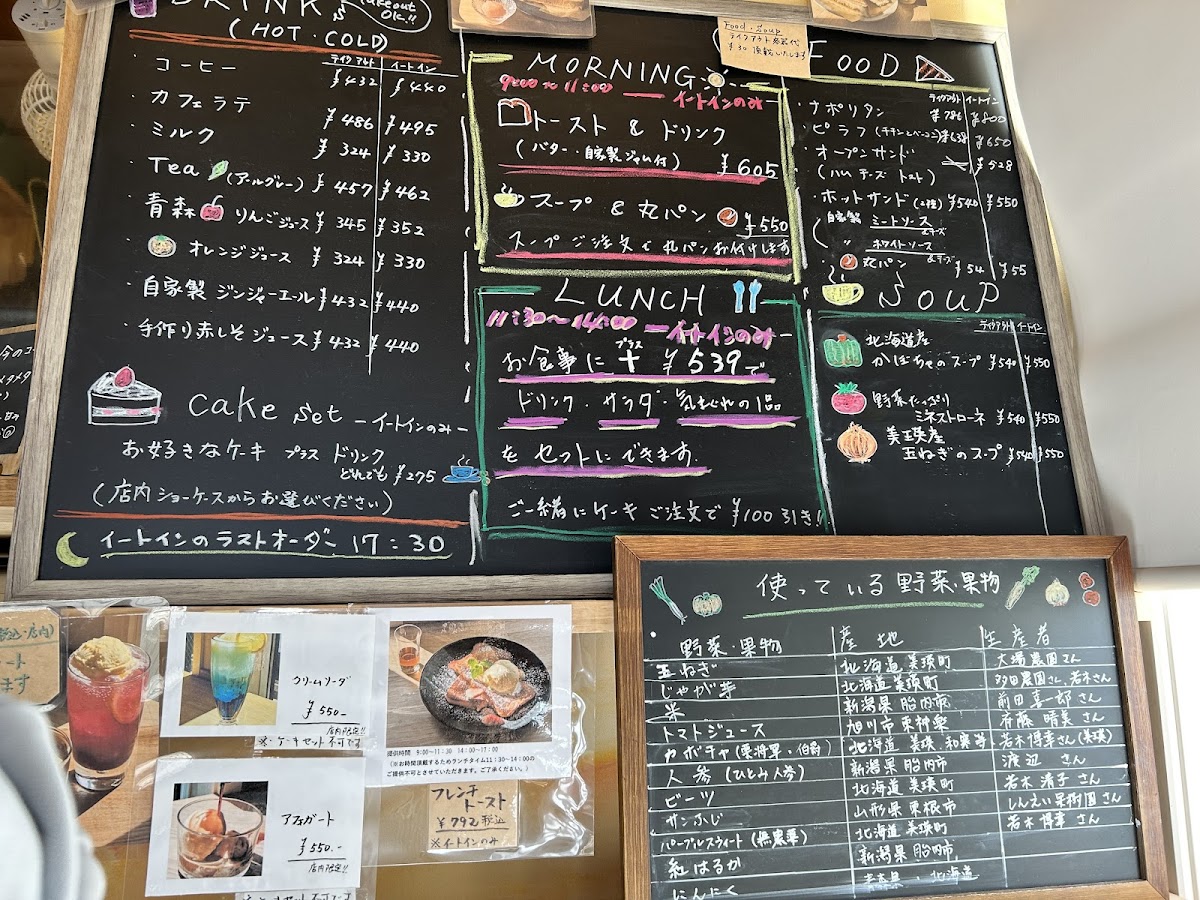 DRINK
Takeout OK!!
(HOT・COLD)
テイクアウト イートイン
・コーヒー ¥432 ¥440
・カフェラテ ¥486 ¥495
・ミルク ¥324 ¥330
・Tea (アールグレー) ¥457 ¥462
・青森 りんごジュース ¥345 ¥352
・オレンジジュース ¥324 ¥330
・自家製 ジンジャーエール ¥432 ¥440
・手作り赤しそジュース ¥432 ¥440
cake set −イートインのみ−
お好きなケーキ プラス ドリンク
どれでも ¥275
(店内ショーケースからお選びください)
イートインのラストオーダー 17:30
MORNING
9:00 to 11:00 −イートインのみ−
トースト & ドリンク
(バター・自家製ジャム付) ¥605
スープ & 丸パン ¥550
スープご注文で丸パンお付けします
LUNCH
11:30〜14:00 −イートインのみ−
お食事に プラス + ¥539で
ドリンク・サラダ・気まぐれの1品
をセットにできます.
ご一緒にケーキご注文で ¥100引き!!
Food・Soup
テイクアウト容器代
¥30頂戴いたします
FOOD
テイクアウト イートイン
・ナポリタン ¥786 ¥800
・ピラフ(チキンとベーコン) ¥638 ¥650
・オープンサンド ¥528
(ハム チーズ トマト)
・ホットサンド(2種) ¥540 ¥550
自家製 ミートソース
&チーズ
〃 ホワイトソース
&チーズ
・丸パン ¥54 ¥55
SOUP
テイクアウト イートイン
北海道産
かぼちゃのスープ ¥540 ¥550
野菜たっぷり
ミネストローネ ¥540 ¥550
美瑛産
玉ねぎのスープ ¥540 ¥550
使っている野菜・果物
野菜・果物 産地 生産者
玉ねぎ 北海道 美瑛町 大場農園さん
じゃが芋 北海道 美瑛町 多田農園さん、若木さん
米 新潟県 胎内市 前田喜一郎さん
トマトジュース 旭川市 東神楽 斉藤晴美さん
カボチャ(栗将軍・伯爵) 北海道 美瑛・和寒等 若木博幸さん(美瑛)
人参(ひとみ人参) 新潟県 胎内市 渡辺 さん
ビーツ 北海道 美瑛町 若木清子さん
サンふじ 山形県 東根市 しんえい果樹園さん
パープルスウィート(無農薬) 北海道 美瑛町 若木博幸さん
紅はるか 新潟県 胎内市
にんにく 北海道
クリームソーダ
¥550-
店内限定!!
※ケーキセット不可です
提供時間 9:00〜11:30 14:00〜17:00
(※お時間頂戴するためランチタイム11:30〜14:00の
ご提供不可とさせていただきます。ご了承ください。)
フレンチ
トースト
¥792税込
※イートインのみ
アフォガート
¥550.-
店内限定!!
ケーキセット不可です